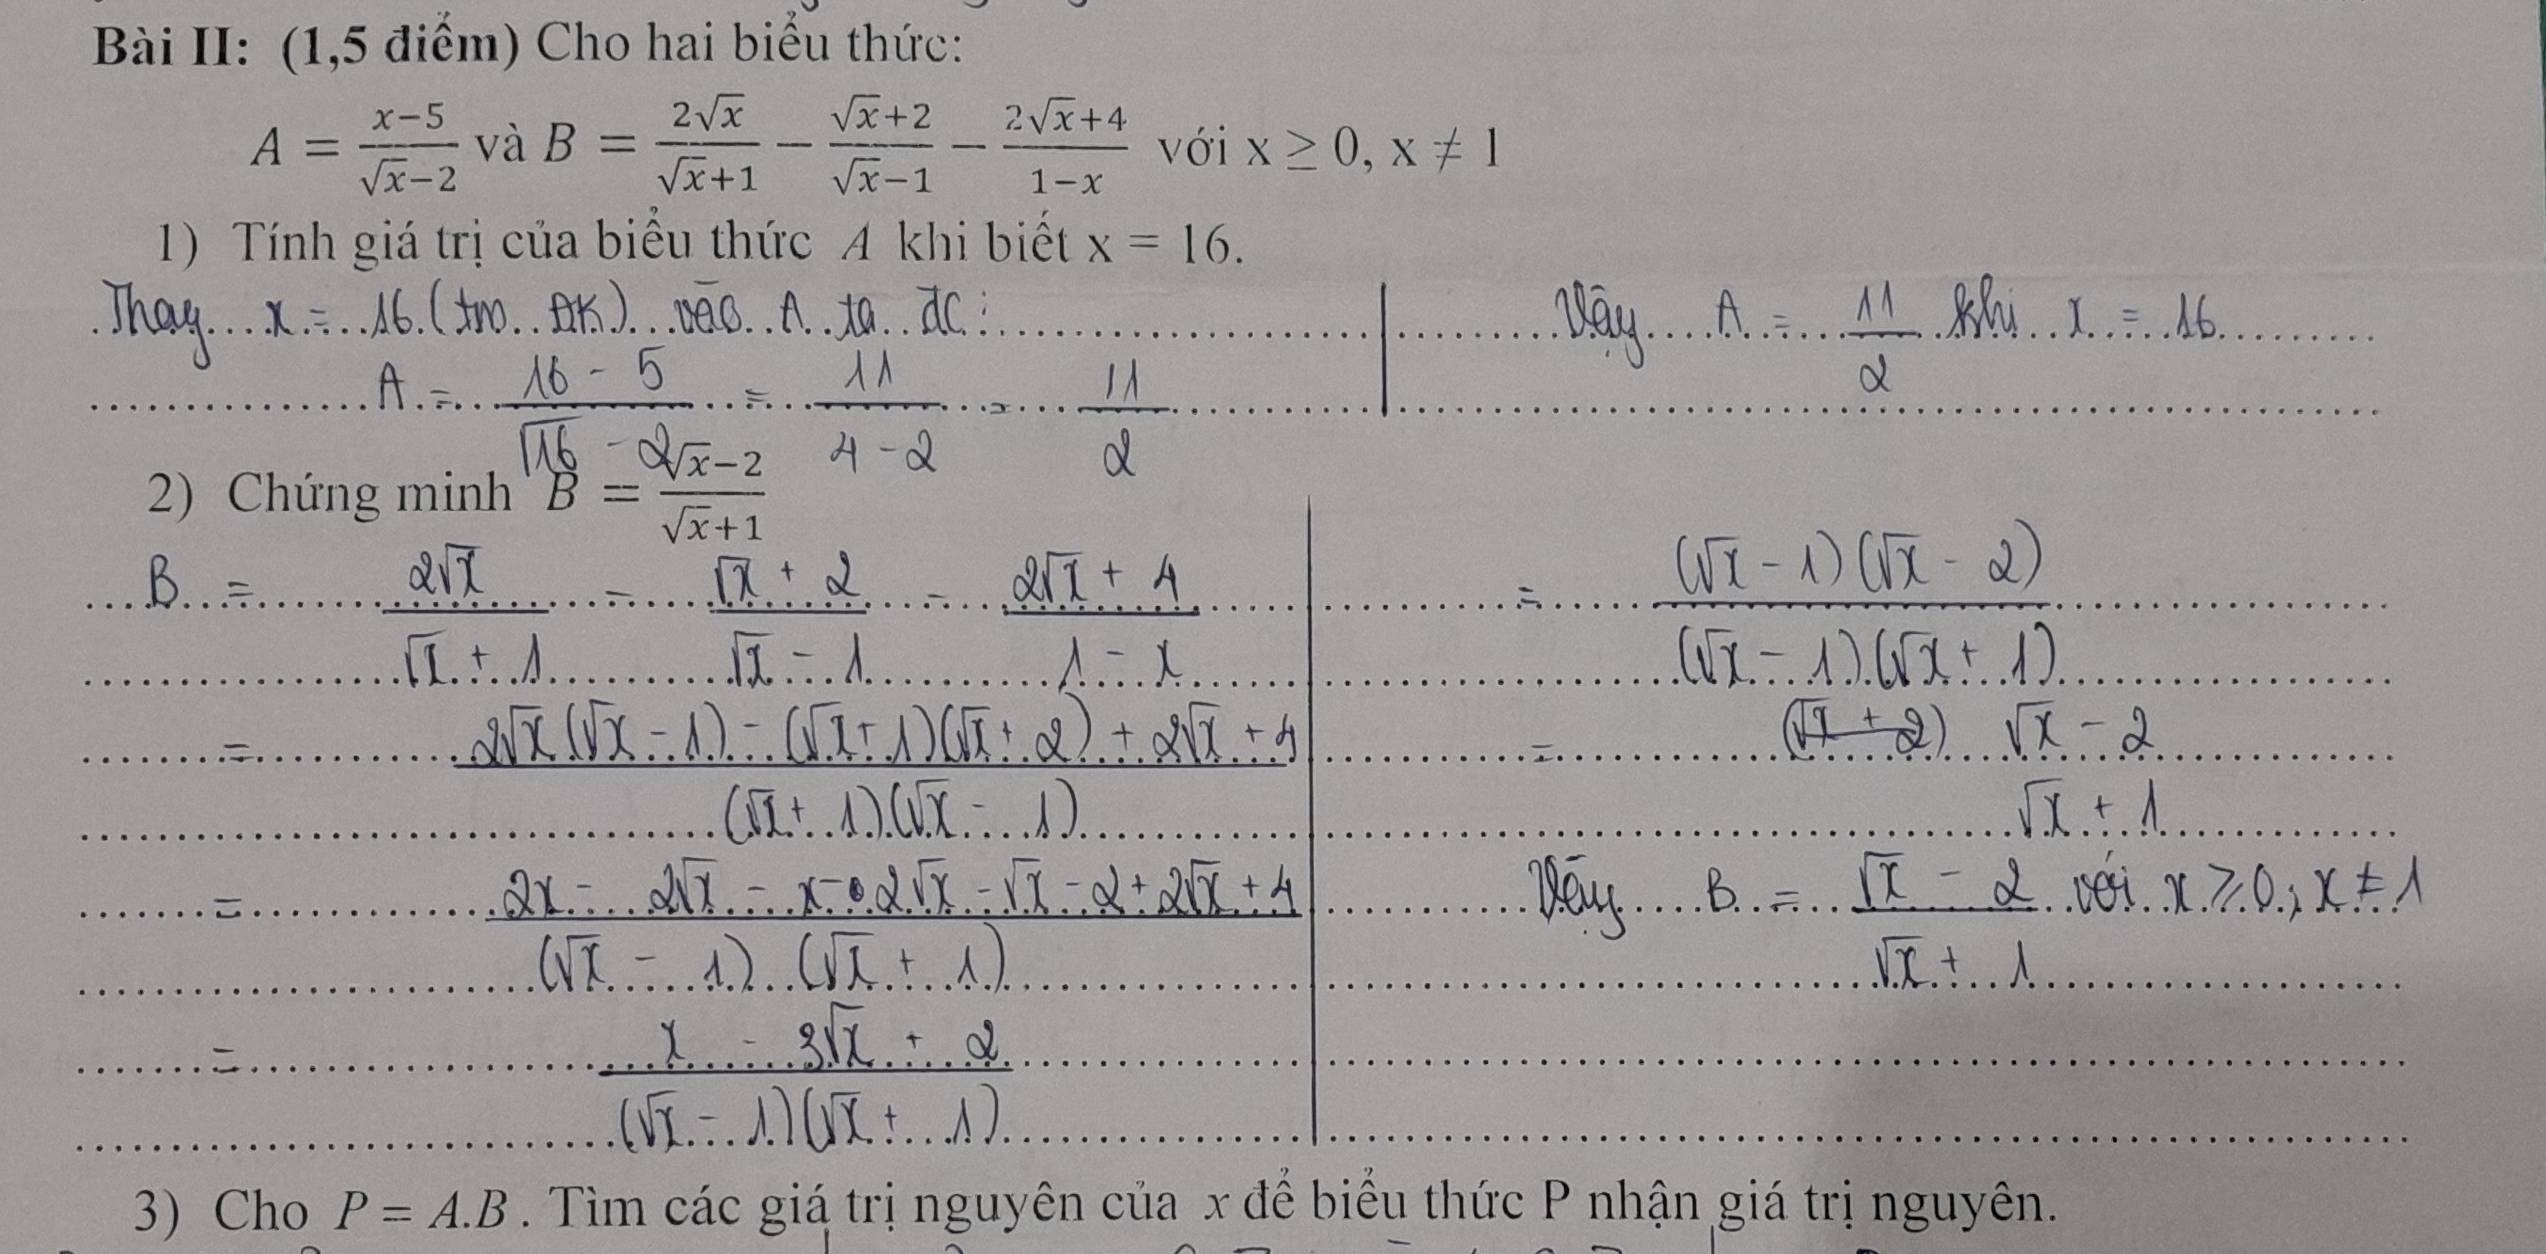 Bài II: (1,5 điểm) Cho hai biểu thức:
A = (x−5)/(√x−2) và B = 2√x/(√x+1) − (√x+2)/(√x−1) − (2√x+4)/(1−x) với x ≥ 0, x ≠ 1
1) Tính giá trị của biểu thức A khi biết x = 16.
Thay x = 16 (tm ĐK) vào A ta đc:
A = (16 - 5)/(√16 - 2) = 11/(4 - 2) = 11/2
Vậy A = 11/2 khi x = 16
2) Chứng minh B = (√x−2)/(√x+1)
B = 2√x/(√x + 1) - (√x + 2)/(√x - 1) - (2√x + 4)/(1 - x)
= (2√x(√x - 1) - (√x + 1)(√x + 2) + 2√x + 4)/((√x + 1)(√x - 1))
= (2x - 2√x - x - 2√x - √x - 2 + 2√x + 4)/((√x - 1)(√x + 1))
= (x - 3√x + 2)/((√x - 1)(√x + 1))
= ((√x - 1)(√x - 2))/((√x - 1)(√x + 1))
= (√x - 2)/(√x + 1)
Vậy B = (√x - 2)/(√x + 1) với x ≥ 0; x ≠ 1
3) Cho P = A.B. Tìm các giá trị nguyên của x để biểu thức P nhận giá trị nguyên.